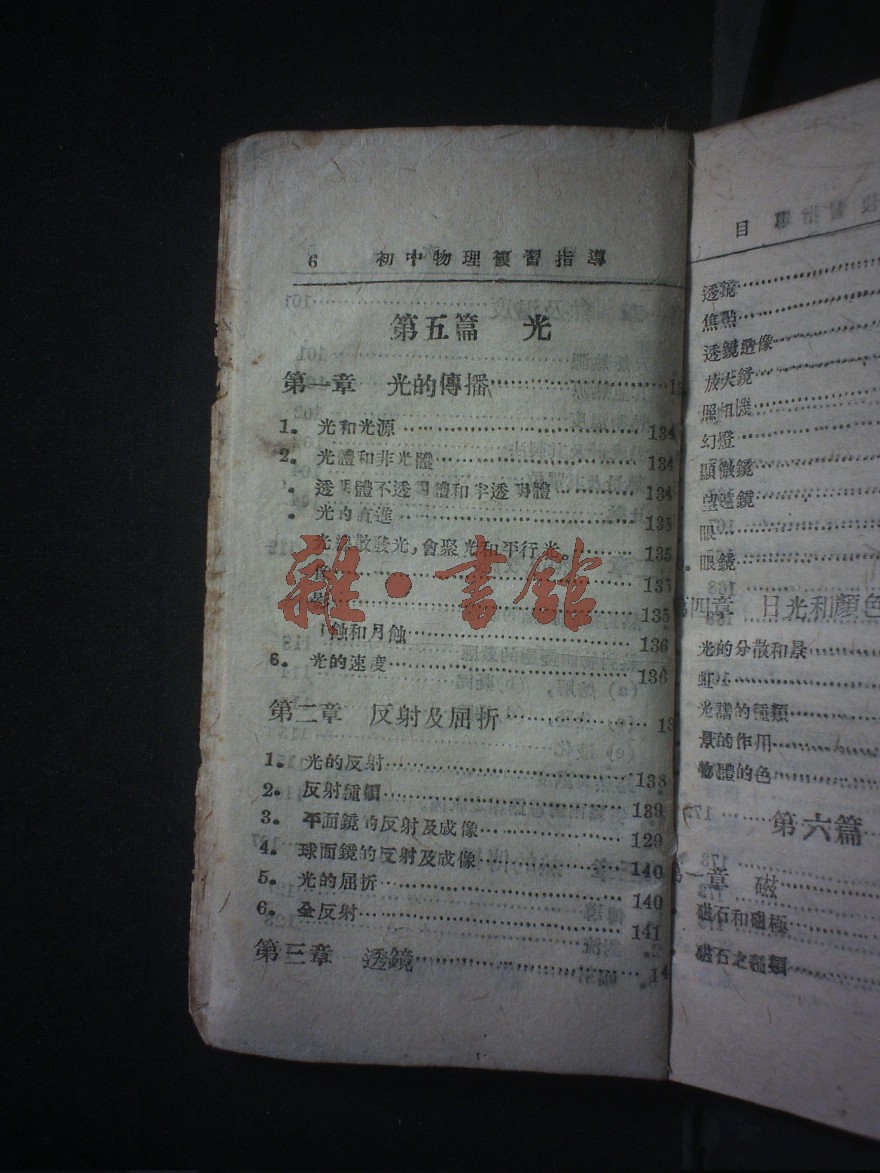 6 初中物理複習指導
第五篇 光
第一章 光的傳播
1. 光和光源 134
2. 光體和非光體 134
透明體不透明體和半透明體 134
光的直進 135
發光,會聚光和平行光。 135
135
135
蝕和月蝕 136
6. 光的速度 136
第二章 反射及屈折
1. 光的反射 138
2. 反射種類 139
3. 平面鏡的反射及成像 129
4. 球面鏡的反射及成像 140
5. 光的屈折 140
6. 全反射 141
第三章 透鏡
雜·書館
目
透鏡
焦點
透鏡造像
放大鏡
照相機
幻燈
顯微鏡
望遠鏡
眼
眼鏡
第四章 日光和顏色
光的分散和景
虹
光譜的種類
景的作用
物體的色
第六篇
第一章 磁
磁石和磁極
磁石之種類